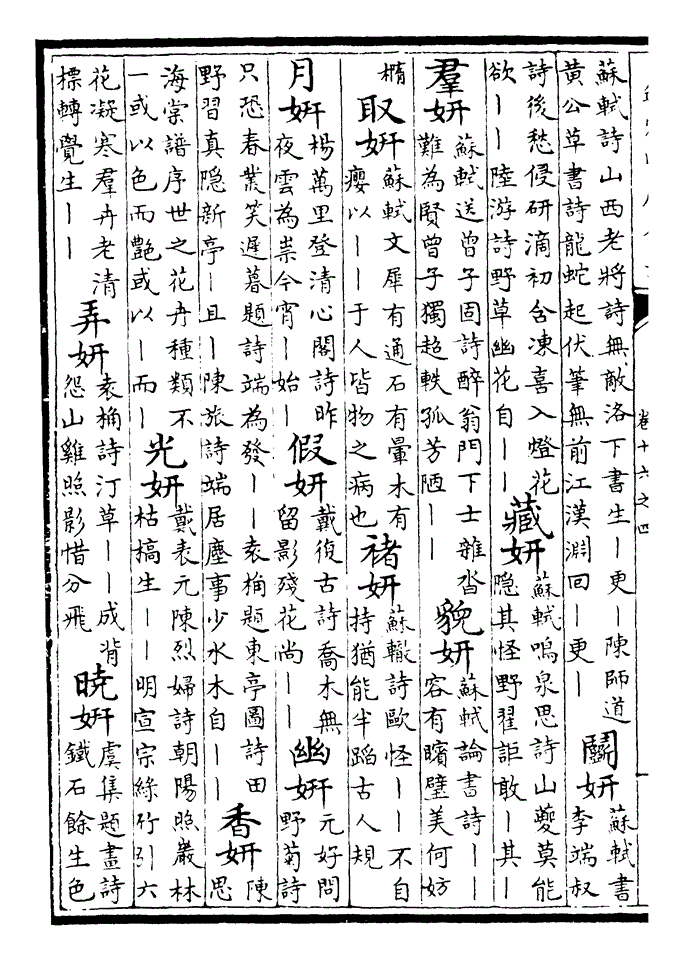 蘇軾詩山西老將詩無敵洛下書生｜更｜陳師道
黃公草書詩龍蛇起伏筆無前江漢淵回｜更｜
鬭妍
蘇軾書
李端叔
詩後愁侵研滴初含凍喜入燈花
欲｜｜陸游詩野草幽花自｜｜
藏妍
蘇軾鳴泉思詩山夔莫能
隱其怪野翟詎敢｜其｜
羣妍
蘇軾送曾子固詩醉翁門下士雜沓
難為賢曾子獨超軼孤芳陋｜｜
貌妍
蘇軾論書詩｜｜
容有矉璧美何妨
橢
取妍
蘇軾文犀有通石有暈木有
癭以｜｜于人皆物之病也
褚妍
蘇轍詩歐怪｜｜不自
持猶能半蹈古人規
月妍
楊萬里登清心閣詩昨
夜雲為祟今宵｜始｜
假妍
戴復古詩喬木無
留影殘花尚｜｜
幽妍
元好問
野菊詩
只恐春叢笑遲暮題詩端為發｜｜袁桷題東亭圖詩田
野習真隱新亭｜且｜陳旅詩端居塵事少水木自｜｜
香妍
陳
思
海棠譜序世之花卉種類不
一或以色而艷或以｜而｜
光妍
戴表元陳烈婦詩朝陽照巖林
枯槁生｜｜明宣宗綠竹引六
花凝寒羣卉老清
標轉覺生｜｜
弄妍
袁桷詩汀草｜｜成背
怨山雞照影惜分飛
曉妍
虞集題畫詩
鐵石餘生色
卷十六之四